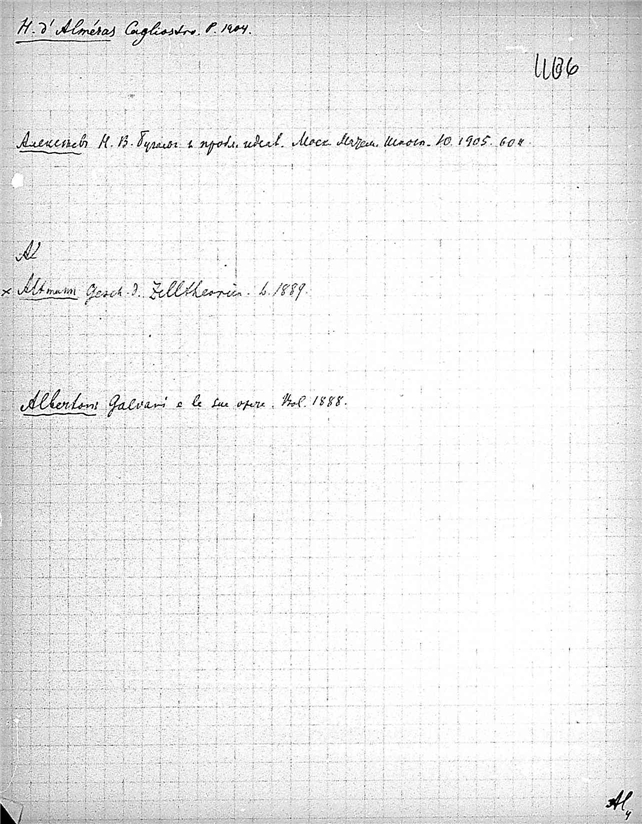 H. d'Alméras Cagliostro. P. 1904.
1136
Алексеевъ Н. В. Бугаев и пробл. идеал. Моск. Матем. Школ. Ю. 1905. 60 к
Al
x Altmann Gesch. d. Zelltheorien. L. 1889.
Albertoni Galvani e le sue opere. Bol. 1888.
Al
4